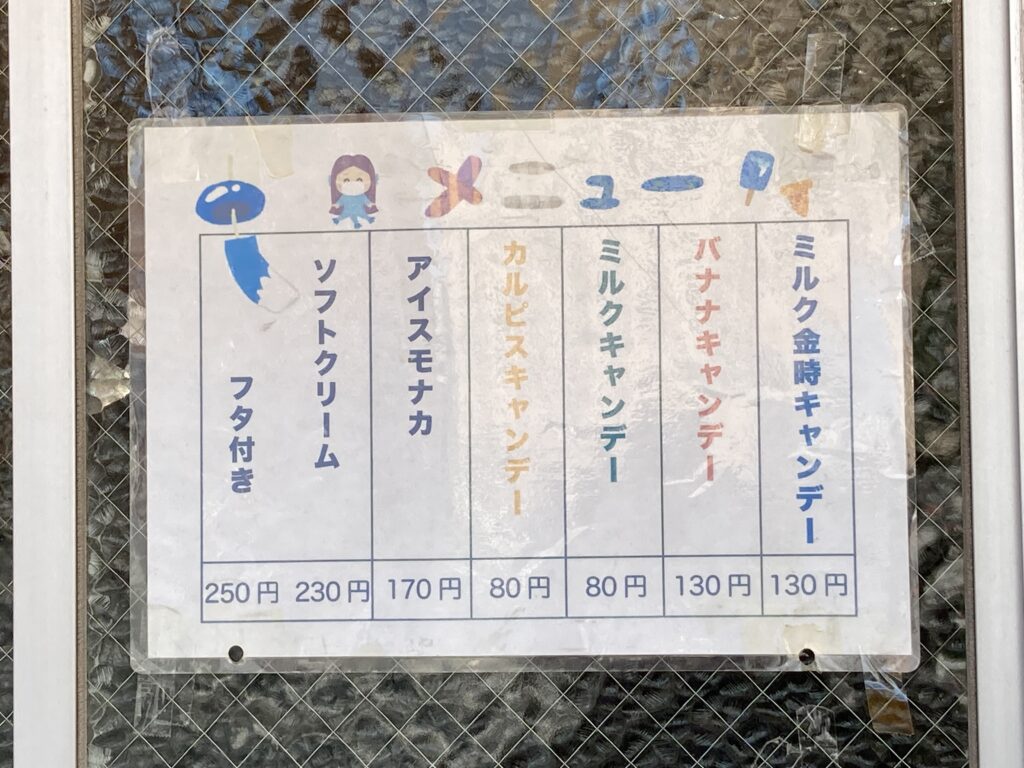 メニュー
ミルク金時キャンデー
130円
バナナキャンデー
130円
ミルクキャンデー
80円
カルピスキャンデー
80円
アイスモナカ
170円
ソフトクリーム
230円
フタ付き
250円